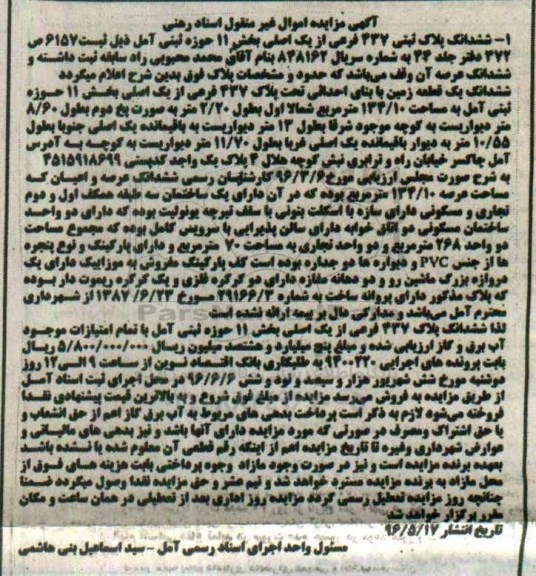 آگهی مزایده اموال غیر منقول اسناد رهنی
۱- ششدانگ پلاک ثبتی ۴۳۷ فرعی از یک اصلی بخش ۱۱ حوزه ثبتی آمل ذیل ثبت ۶۱۵۷ ص
۳۷۲ دفتر جلد ۴۴ به شماره سریال ۸۴۸۱۶۲ بنام آقای محمد محبوبی راه سابقه ثبت داشته و
ششدانگ عرصه آن وقف می‌باشد که حدود و مشخصات پلاک فوق بدین شرح اعلام میگردد
ششدانگ یک قطعه زمین با بنای احداثی تحت پلاک ۴۳۷ فرعی از یک اصلی بخش ۱۱ حوزه
ثبتی آمل به مساحت ۱۳۴/۱۰ مترمربع شمالا اول بطول ۲/۲۰ متر به صورت پخ دوم بطول ۸/۶۰
متر دیواریست به کوچه موجود شرقا بطول ۱۳ متر دیواریست به باقیمانده یک اصلی جنوبا بطول
۱۰/۵۵ متر به دیوار باقیمانده یک اصلی غربا بطول ۱۱/۷۰ متر دیواریست به کوچه به آدرس
آمل چاکسر خیابان راه و ترابری نبش کوچه هلال ۴ پلاک یک واحد کدپستی ۴۵۱۵۹۱۸۶۹۹
به شرح صورت مجلس ارزیابی مورخ ۹۶/۳/۶ کارشناسان رسمی ششدانگ عرصه و اعیان که
مساحت عرصه ۱۳۴/۱۰ مترمربع بوده که در آن دارای یک ساختمان سه طبقه همکف اول و دوم
تجاری و مسکونی دارای سازه با اسکلت بتونی با سقف تیرچه یونولیت بوده که دارای دو واحد
ساختمان مسکونی دو اتاق خوابه دارای سالن پذیرایی با سرویس کامل بوده که مجموع مساحت
دو واحد ۲۶۸ مترمربع و دو واحد تجاری به مساحت ۷۰ مترمربع و دارای پارکینگ و نوع پنجره
ها از جنس PVC و دیواره ها دو جداره بوده است کف پارکینگ مفروش به موزاییک دارای یک
دروازه بزرگ ماشین رو و دو دهانه مغازه دارای دو کرکره فلزی و یک کرکره ریموت دار بوده
که پلاک مذکور دارای پروانه ساخت به شماره ۲۹۱۶۶/۳ مورخ ۱۳۸۷/۶/۲۳ از شهرداری
محترم آمل می‌باشد و مدارکی دال بر بیمه ارائه نشده است
لذا ششدانگ پلاک ۴۳۷ فرعی از یک اصلی بخش ۱۱ حوزه ثبتی آمل با تمام امتیازات موجود
آب برق و گاز ارزیابی شده و مبلغ پنج میلیارد و هشتصد میلیون ریال ۵/۸۰۰/۰۰۰/۰۰۰ ریال
بابت پرونده های اجرایی ۹۴۰۰۲۲۰ به طلبکاری بانک اقتصاد نوین از ساعت ۹ الی ۱۲ روز
دوشنبه مورخ شش شهریور هزار و سیصد و نود و شش ۹۶/۶/۶ در محل اجرای ثبت اسناد آمل
از طریق مزایده به فروش می‌رسد مزایده از مبلغ فوق شروع و به بالاترین قیمت پیشنهادی نقدا
فروخته می‌شود لازم به ذکر است پرداخت بدهی های مربوط به آب برق گاز اعم از حق انشعاب و
یا حق اشتراک ومصرف در صورتی که مورد مزایده دارای آنها باشد و نیز بدهی های مالیاتی و
عوارض شهرداری وغیره تا تاریخ مزایده اعم از اینکه رقم قطعی آن معلوم شده یا نشده باشد
بعهده برنده مزایده است و نیز در صورت وجود مازاد وجوه پرداختی بابت هزینه های فوق از
محل مازاد به برنده مزایده مسترد خواهد شد و نیم عشر و حق مزایده نقدا وصول میگردد ضمنا
چنانچه روز مزایده تعطیل رسمی گردد مزایده روز اداری بعد از تعطیلی در همان ساعت و مکان
مقرر برگزار خواهد شد.
تاریخ انتشار ۹۶/۵/۱۷
مسئول واحد اجرای اسناد رسمی آمل - سید اسماعیل بنی هاشمی